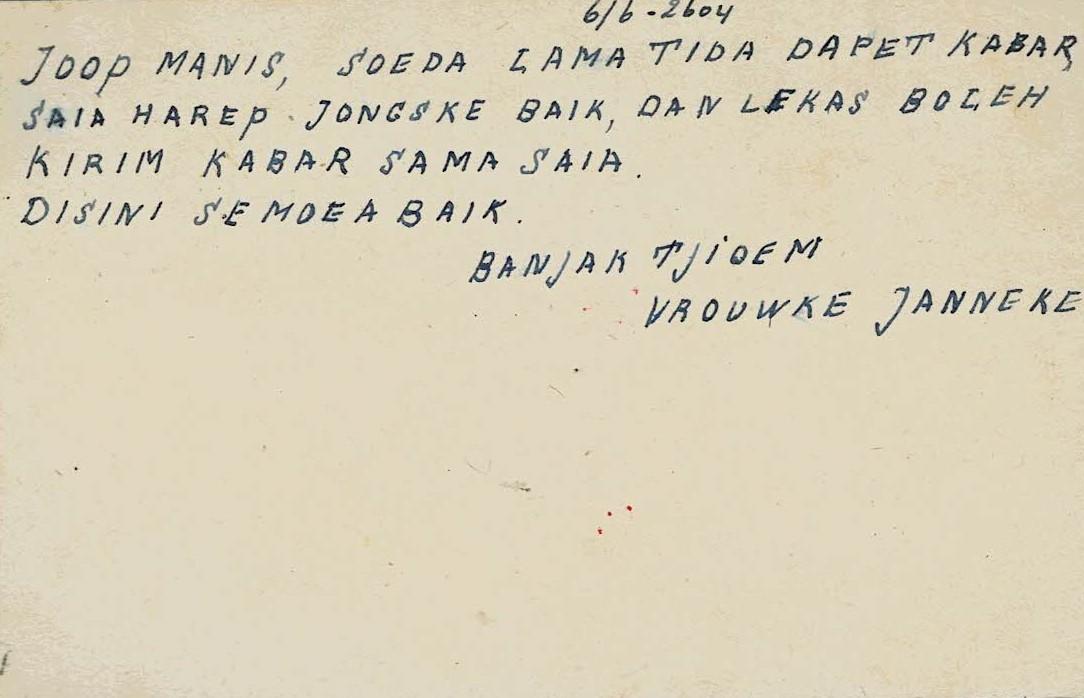 6/6-2604
JOOP MANIS, SOEDA LAMA TIDA DAPET KABAR,
SAIA HAREP JONGSKE BAIK, DAN LEKAS BOLEH
KIRIM KABAR SAMA SAIA.
DISINI SEMOEA BAIK.
BANJAK TJIOEM
VROUWKE JANNEKE